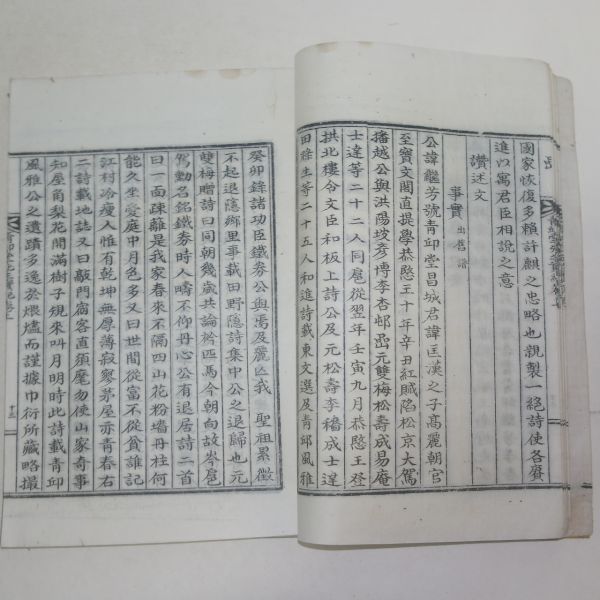 國家恢復多賴許麒之忠略也親製一絕詩使各賡
進以寓君臣相說之意
讚述文
事實 出舊譜
公諱繼芳號青邱堂昌城君諱匡漢之子高麗朝官
至寶文閣直提學恭愍王十年辛丑紅賊陷松京大駕
播越公與洪陽坡彦博李杏邨嵒元雙梅松壽成易庵
士達等二十二人同扈從翌年壬寅九月恭愍王登
拱北樓令文臣和板上詩公及元松壽李穡成士達
田祿生等二十五人和進詩載東文選及青邱風雅
癸卯錄諸功臣鐵券公與焉及麗亡我 聖祖累徵
不起退隱鄉里事載田野隱詩集中公之退歸也元
雙梅贈詩曰同朝幾歲共論衿匹馬今朝向故岑扈
駕勳名銘鐵券時人疇不仰丹心公有退居詩二首
曰一面疎籬是我家春來不隔四山花粉墻丹桂何
能久坐愛庭中月色多又曰世間從富不從貧誰記
江村冷瘦人惟有乾坤無厚薄寂寥茅屋亦青春右
二詩載地誌又曰敲門宿客直須麾勿使山家奇事
知屋角梨花開滿樹子規來叫月明時此詩載青邱
風雅公之遺蹟多逸於煨燼而謹據巾衍所藏略撮